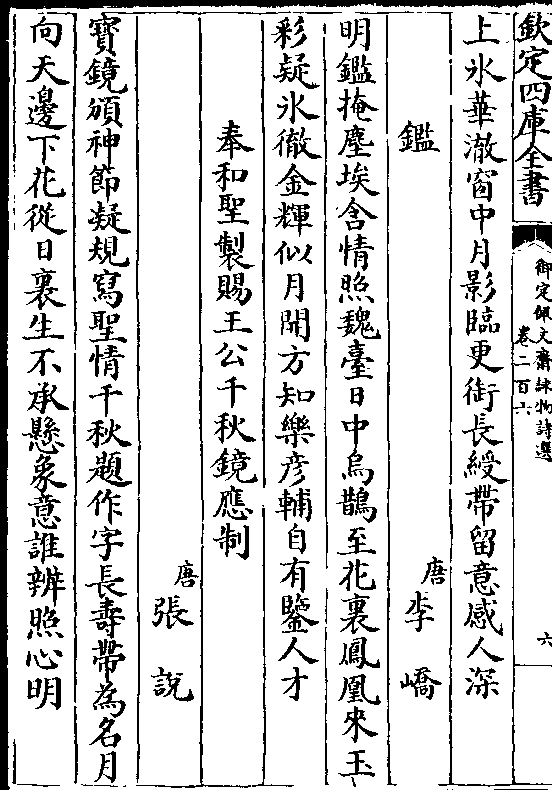 欽定四庫全書
御定佩文齋詠物詩選
卷二百六
六
上氷華澈窗中月影臨更銜長綬帶留意感人深
鑑
唐李嶠
明鑑掩塵埃含情照魏臺日中烏鵲至花裏鳳凰來玉
彩疑氷徹金輝似月開方知樂彦輔自有鑒人才
奉和聖製賜王公千秋鏡應制
唐張說
寶鏡頒神節凝規寫聖情千秋題作字長壽帶為名月
向天邊下花從日裏生不承懸象意誰辨照心明